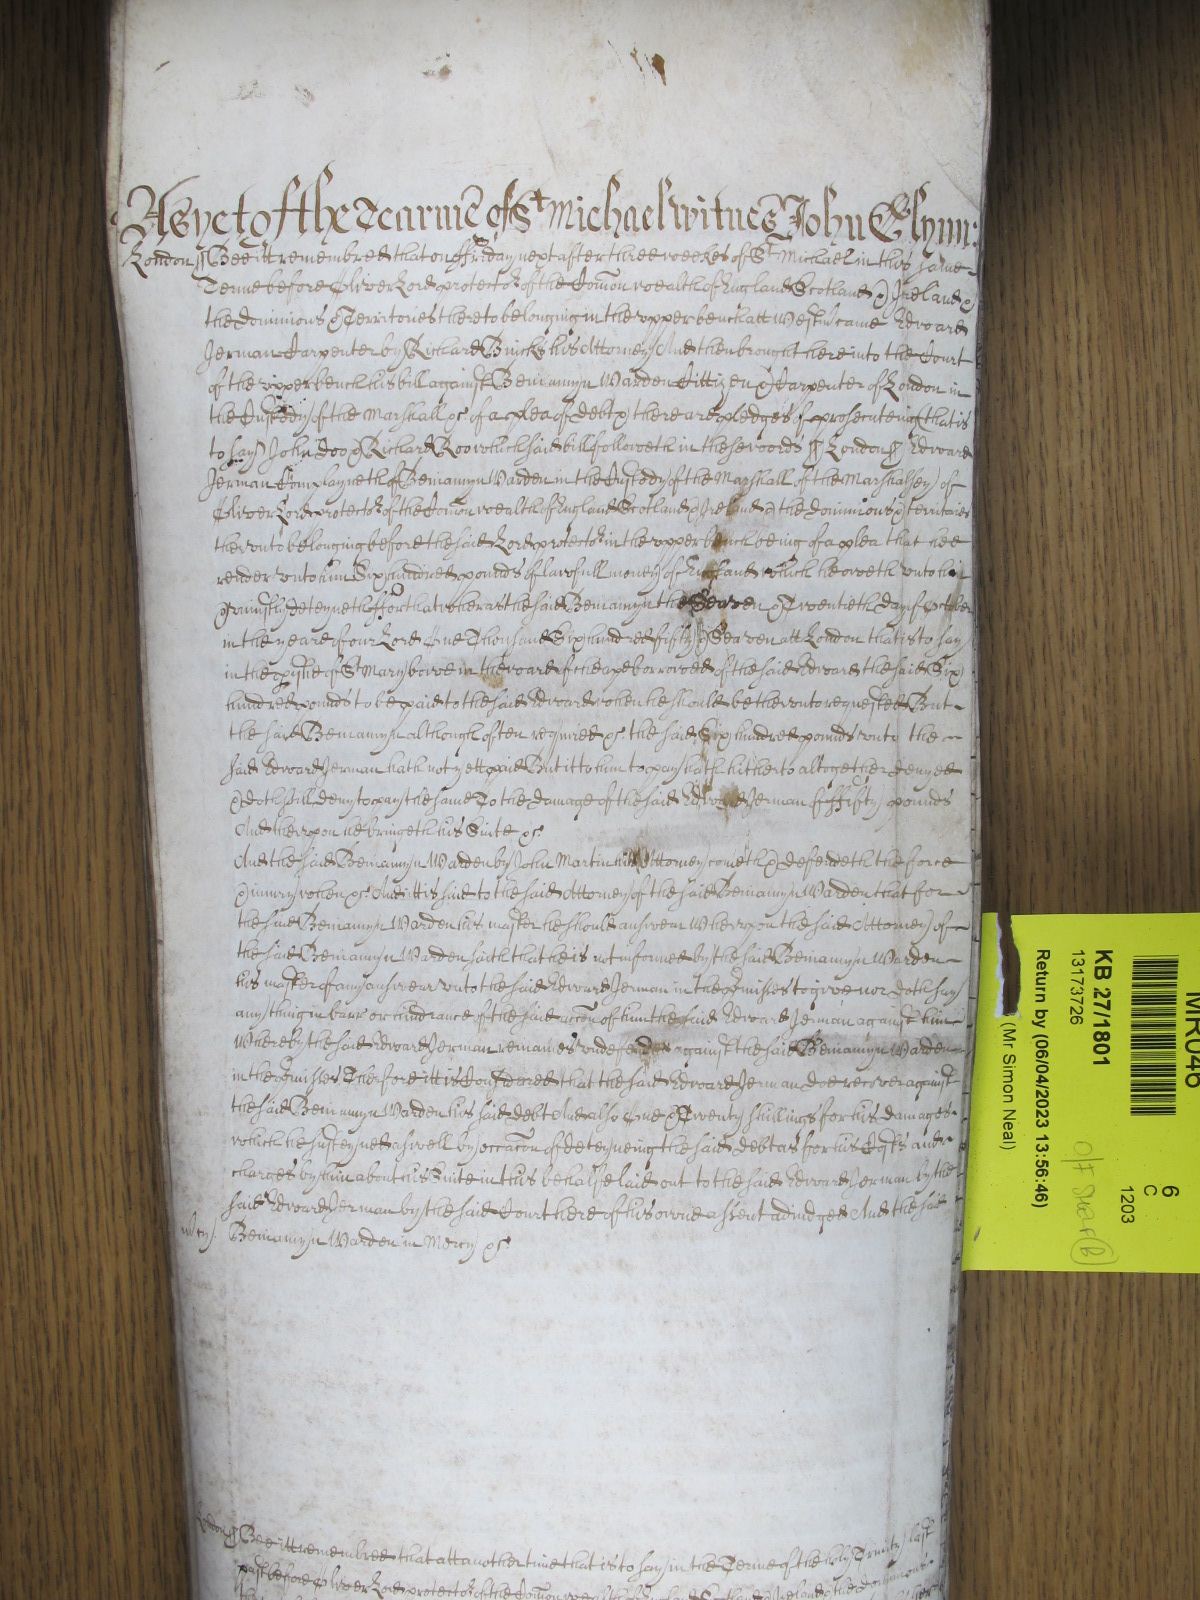 As yet of the Tearme of St Michael witnes John Glynn:
London ss Bee itt remembred that on ffriday next after three weekes of St Michael in this same
Terme before Oliver Lord protector of the Comon wealth of England Scotland & Ireland &
the dominions & Territories thereto belonging in the upper bench att Westmr came Edward
Jerman Carpenter by Richard Bricks his Attorney And then brought here into the Court
of the upper bench his bill against Beniamyn Warden Cittizen & Carpenter of London in
the Custody of the Marshall &c. of a plea of debt & there are pledges of prosecuteing that is
to say John Doo & Richard Roo which said bill followeth in these words ss London ss Edward
Jerman Complayneth of Beniamyn Warden in the Custody of the Marshall of the Marshalsey of
Oliver Lord protector of the Comon wealth of England Scotland & Ireland & the dominions & territories
therunto belonging before the said Lord protector in the upper bench being of a plea that hee
render unto him Six hundred pounds of lawfull money of England which he oweth unto him
& uniustly deteyneth ffor that wheras the said Beniamyn the Seaven & Twentieth day of October
in the yeare of our Lord One Thousand Six hundred fifty & Seaven att London that is to say
in the pishe of St Mary bowe in the ward of Cheape borrowed of the said Edward the said Six
hundred pounds to be paid to the said Edward when he should be therunto requested But
the said Beniamyn although often required &c. the said Six hundred pounds unto the
said Edward Jerman hath not yett paid But it to him to pay hath hitherto altogether denyed
& doth still deny to pay the same To the damage of the said Edward Jerman of ffifty pounds
And therupon he bringeth his Suite &c.
And the said Beniamyn Warden by John Martin his Attorney cometh & defendeth the force
& iniury when &c. And itt is said to the said Attorney of the said Beniamyn Warden that for
the said Beniamyn Warden his master he should answear Wherupon the said Attorney of
the said Beniamyn Warden saith that he is not informed by the said Beniamyn Warden
his master of any answear unto the said Edward Jerman in the pmisses to give nor doth say
any thing in barr or hindrance of the said accon of him the said Edward Jerman against him
Whereby the said Edward Jerman remaines undefended against the said Beniamyn Warden
in the pmisses Therfore itt is Considered that the said Edward Jerman doe recover against
the said Beniamyn Warden his said debt And also One & Twenty shillings for his damages
which he susteyned aswell by occacon of deteyneing the said debt as for his Costs and
charges by him about his Suite in this behalfe laid out to the said Edward Jerman by the
said Edward Jerman by the said Court here of his owne assent adiudged And the said
mcy. Beniamyn Warden in Mercy &c.
London ss Bee itt remembred that att another time that is to say in the Terme of the holy Trinity last
past before Oliver Lord protector of the Comon wealth of England Scotland & Ireland & the dominions
MR046
6
C
1203
KB 27/1801
13173726
Return by (06/04/2023 13:56:46)
(Mr Simon Neal)